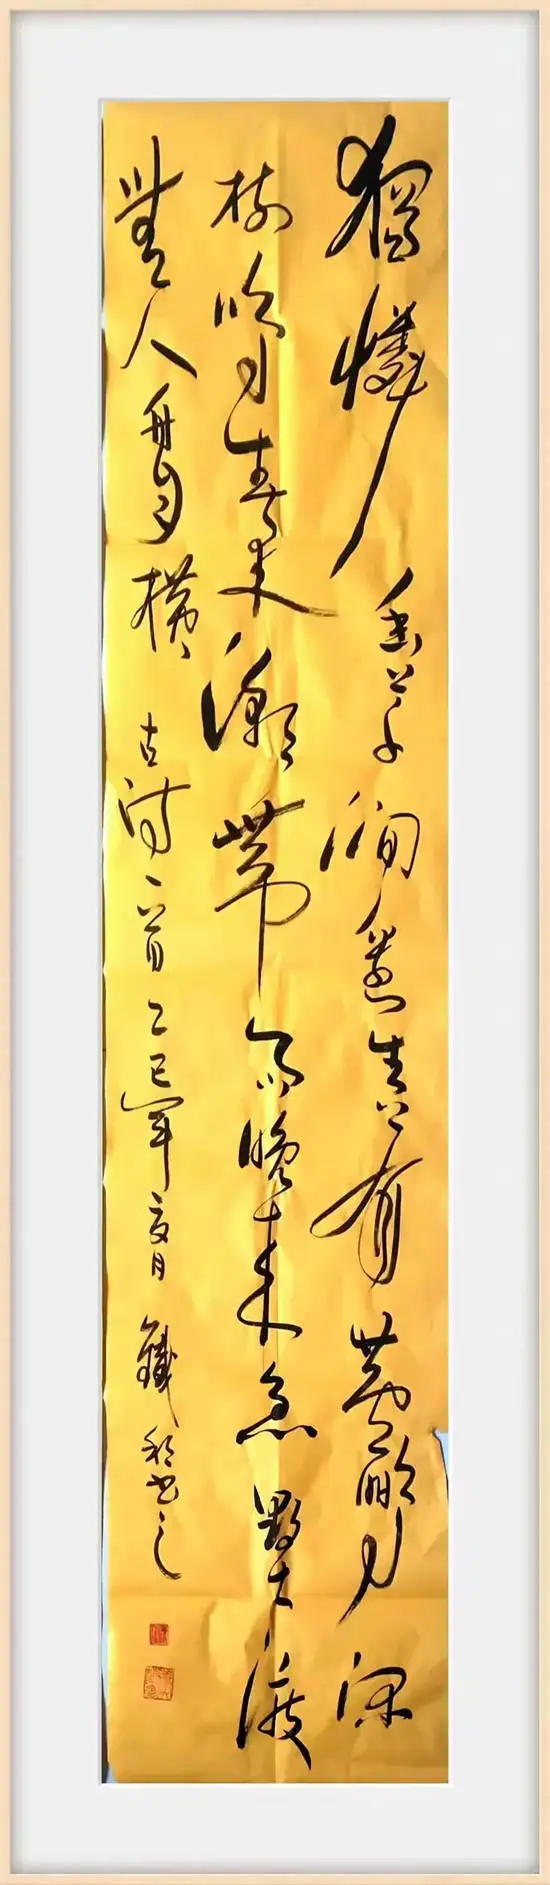 獨憐幽草澗邊生上有黃鸝深
樹鳴春來潮帶雨晚來急野渡
無人舟自橫 古詩一首 乙巳年夏月 鐵 書之